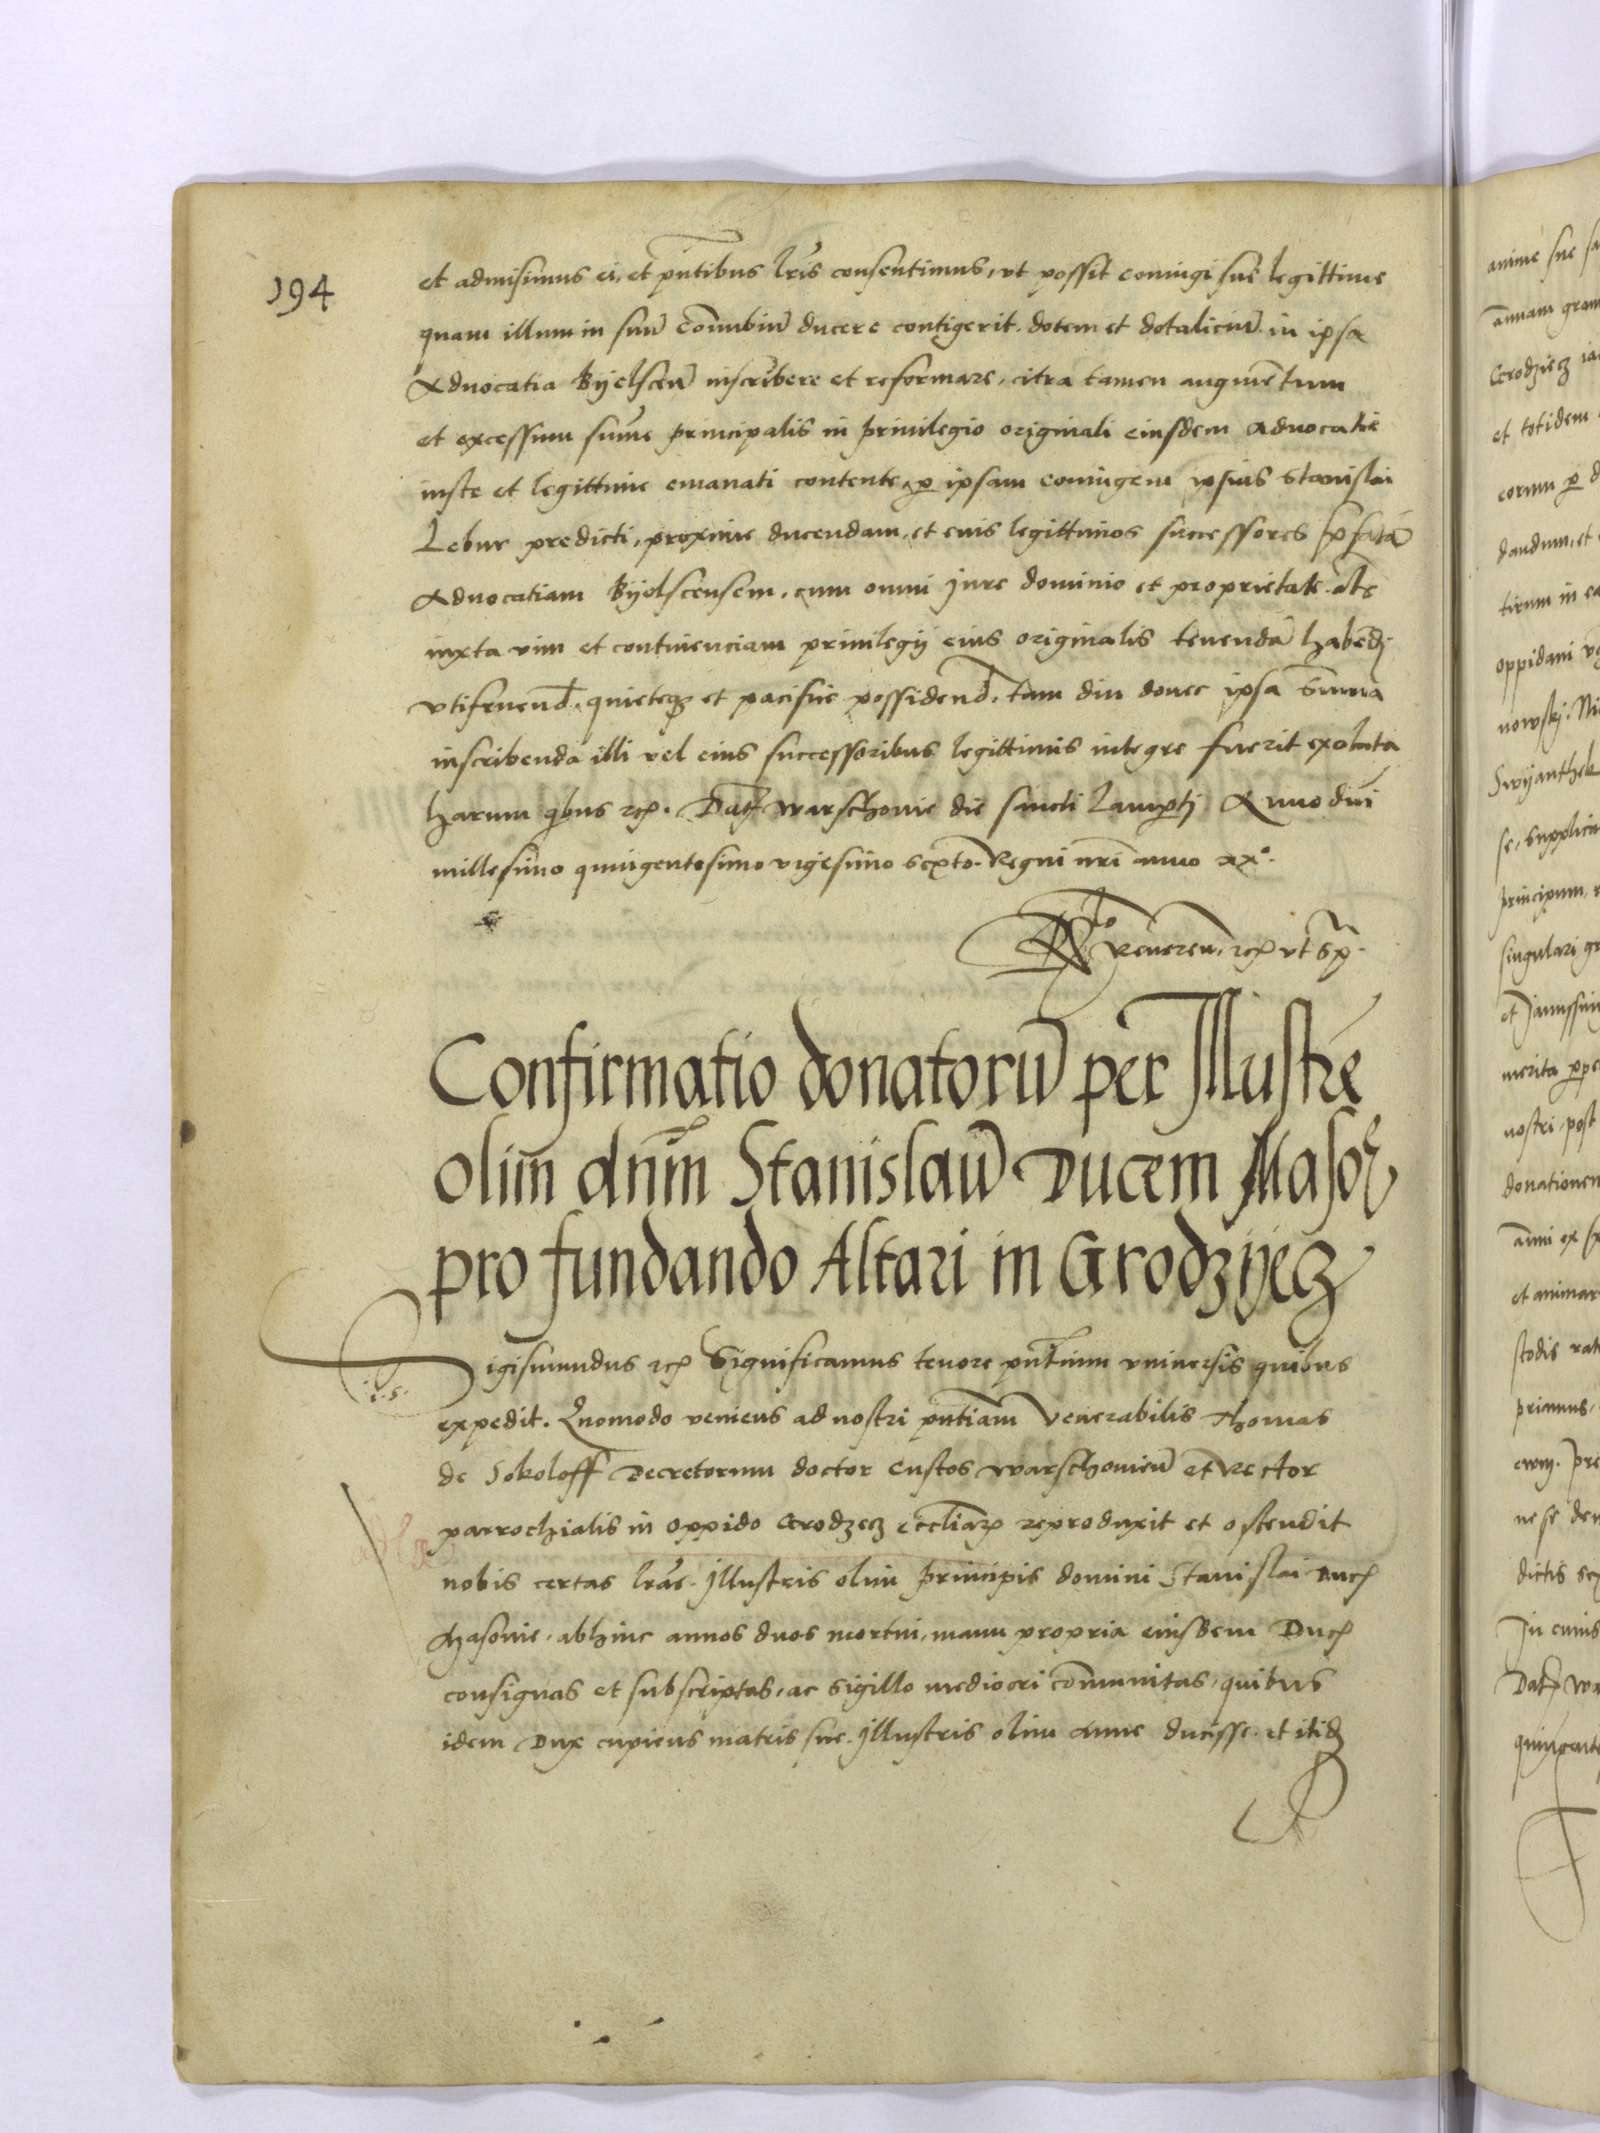 194
et admisimus ei, et pñtibus lr̃is consentimus, vt possit coniugi sue legittime
quam illum in suũ cõnubiũ ducere contigerit. dotem et dotaliciũ in ipsa
Aduocatia Byelsceñ inscribere et reformare, citra tamen augmẽtum
et excessum sum̃e principalis in priuilegio originali eiusdem aduocatie
iuste et legittime emanati contente, ꝑ ipsam coniugem ipsius Stanislai
Lebur predicti, proxime ducendam, et euis legittimos successores
Aduocatiam Byelscensem, cum omni Iure dominio et proprietate
iuxta vim et continenciam priuilegij eius originalis tenendã habẽd
vtifruend, quieteqʒ et pacifice possidend, tam diu donec ipsa Sum̃a
inscribenda illi vel eius successoribus legittimis integre fuerit exoluta
harum qˈbus ꝛcꝫ. Datꝫ Warschouie die sancti Lamperti Anno dñi
millesimo quingentesimo vigesimo sexto. Regni nr̃i anno xx°.
Rto Reueren. ꝛcꝫ vt Spᵃ.
Confirmatio donatorũ per Illustrẽ
olim dnm̃ Stanislaũ Ducem Masoᵉ
pro fundando Altari in Grodzyecz
Sigismundus ꝛcꝫ Significamus tenore pñtium vniuersis quibus
expedit. Quomodo veniens ad nostri pñtiam Venerabilis Thomas
de Sokoloff Decretorum doctor Custos Warschouieñ et Rector
parrochialis in oppido Grodzecz eccliaꝝ reproduxit et ostendit
nobis certas lr̃as. Illustris olim principis domini Stanislai Ducꝫ
Masouie, abhinc annos duos mortui, manu propria eiusdem Ducꝫ
consignas et subscriptas, ac sigillo mediocri cõmunitas, quibus
idem Dux cupiens matris sue, Illustris olim Anne ducisse. et itidꝫ
anime sue
annuam gram
Grodziecz
et totidem
eorum ꝑ
dandum, et
tirum in
oppidani
nowski.
Swyanthek
se, supplica
principum,
singulari
et Janussi
merita
nostri, post
donationem
anni ex
et animar
stodis
primus,
ne se
dictis
In cuius